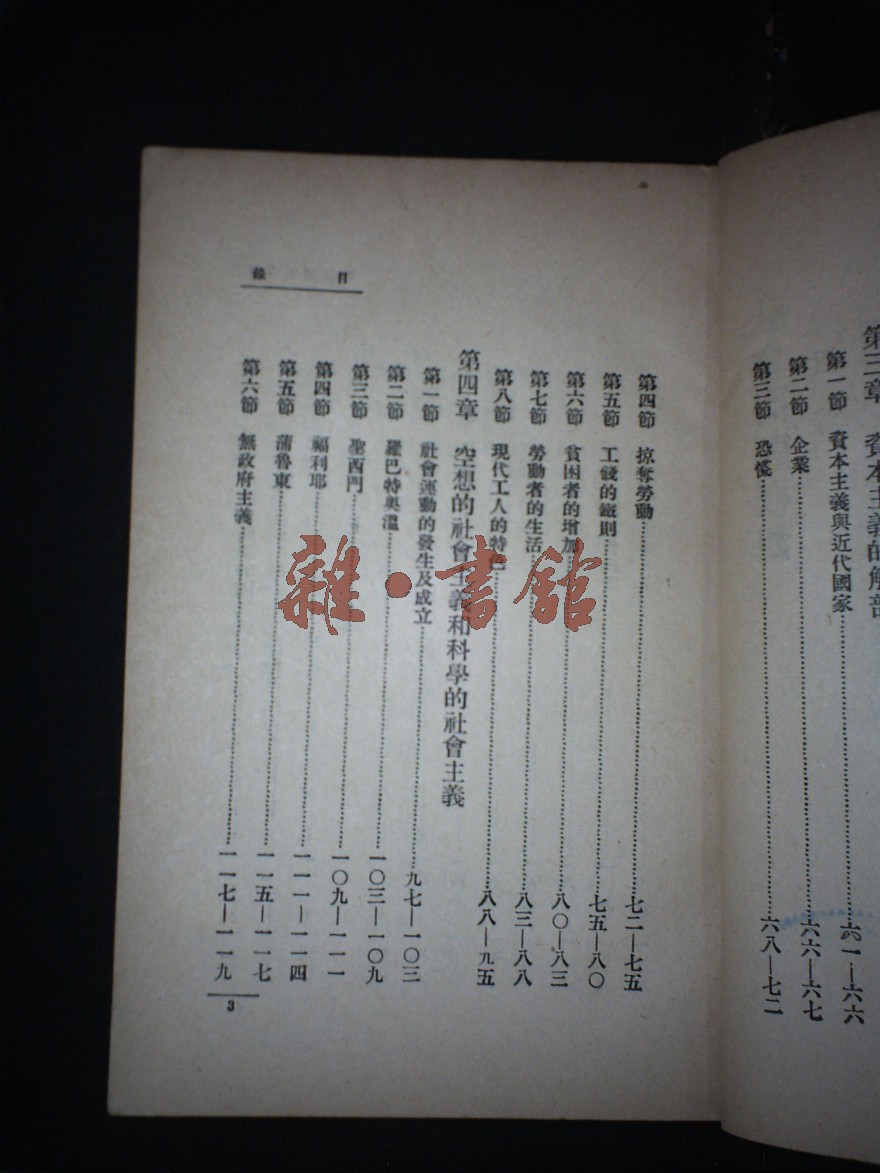 第三章 資本主義的解剖
第一節 資本主義與近代國家……六一—六六
第二節 企業……六六—六七
第三節 恐慌……六八—七二
目錄
第四節 掠奪勞動……七二—七五
第五節 工錢的鐵則……七五—八〇
第六節 貧困者的增加……八〇—八三
第七節 勞動者的生活……八三—八八
第八節 現代工人的特色……八八—九五
第四章 空想的社會主義和科學的社會主義
第一節 社會運動的發生及成立……九七—一〇三
第二節 羅巴特奧溫……一〇三—一〇九
第三節 聖西門……一〇九—一一一
第四節 福利耶……一一一—一一四
第五節 蒲魯東……一一五—一一七
第六節 無政府主義……一一七—一一九
3
雜·書館